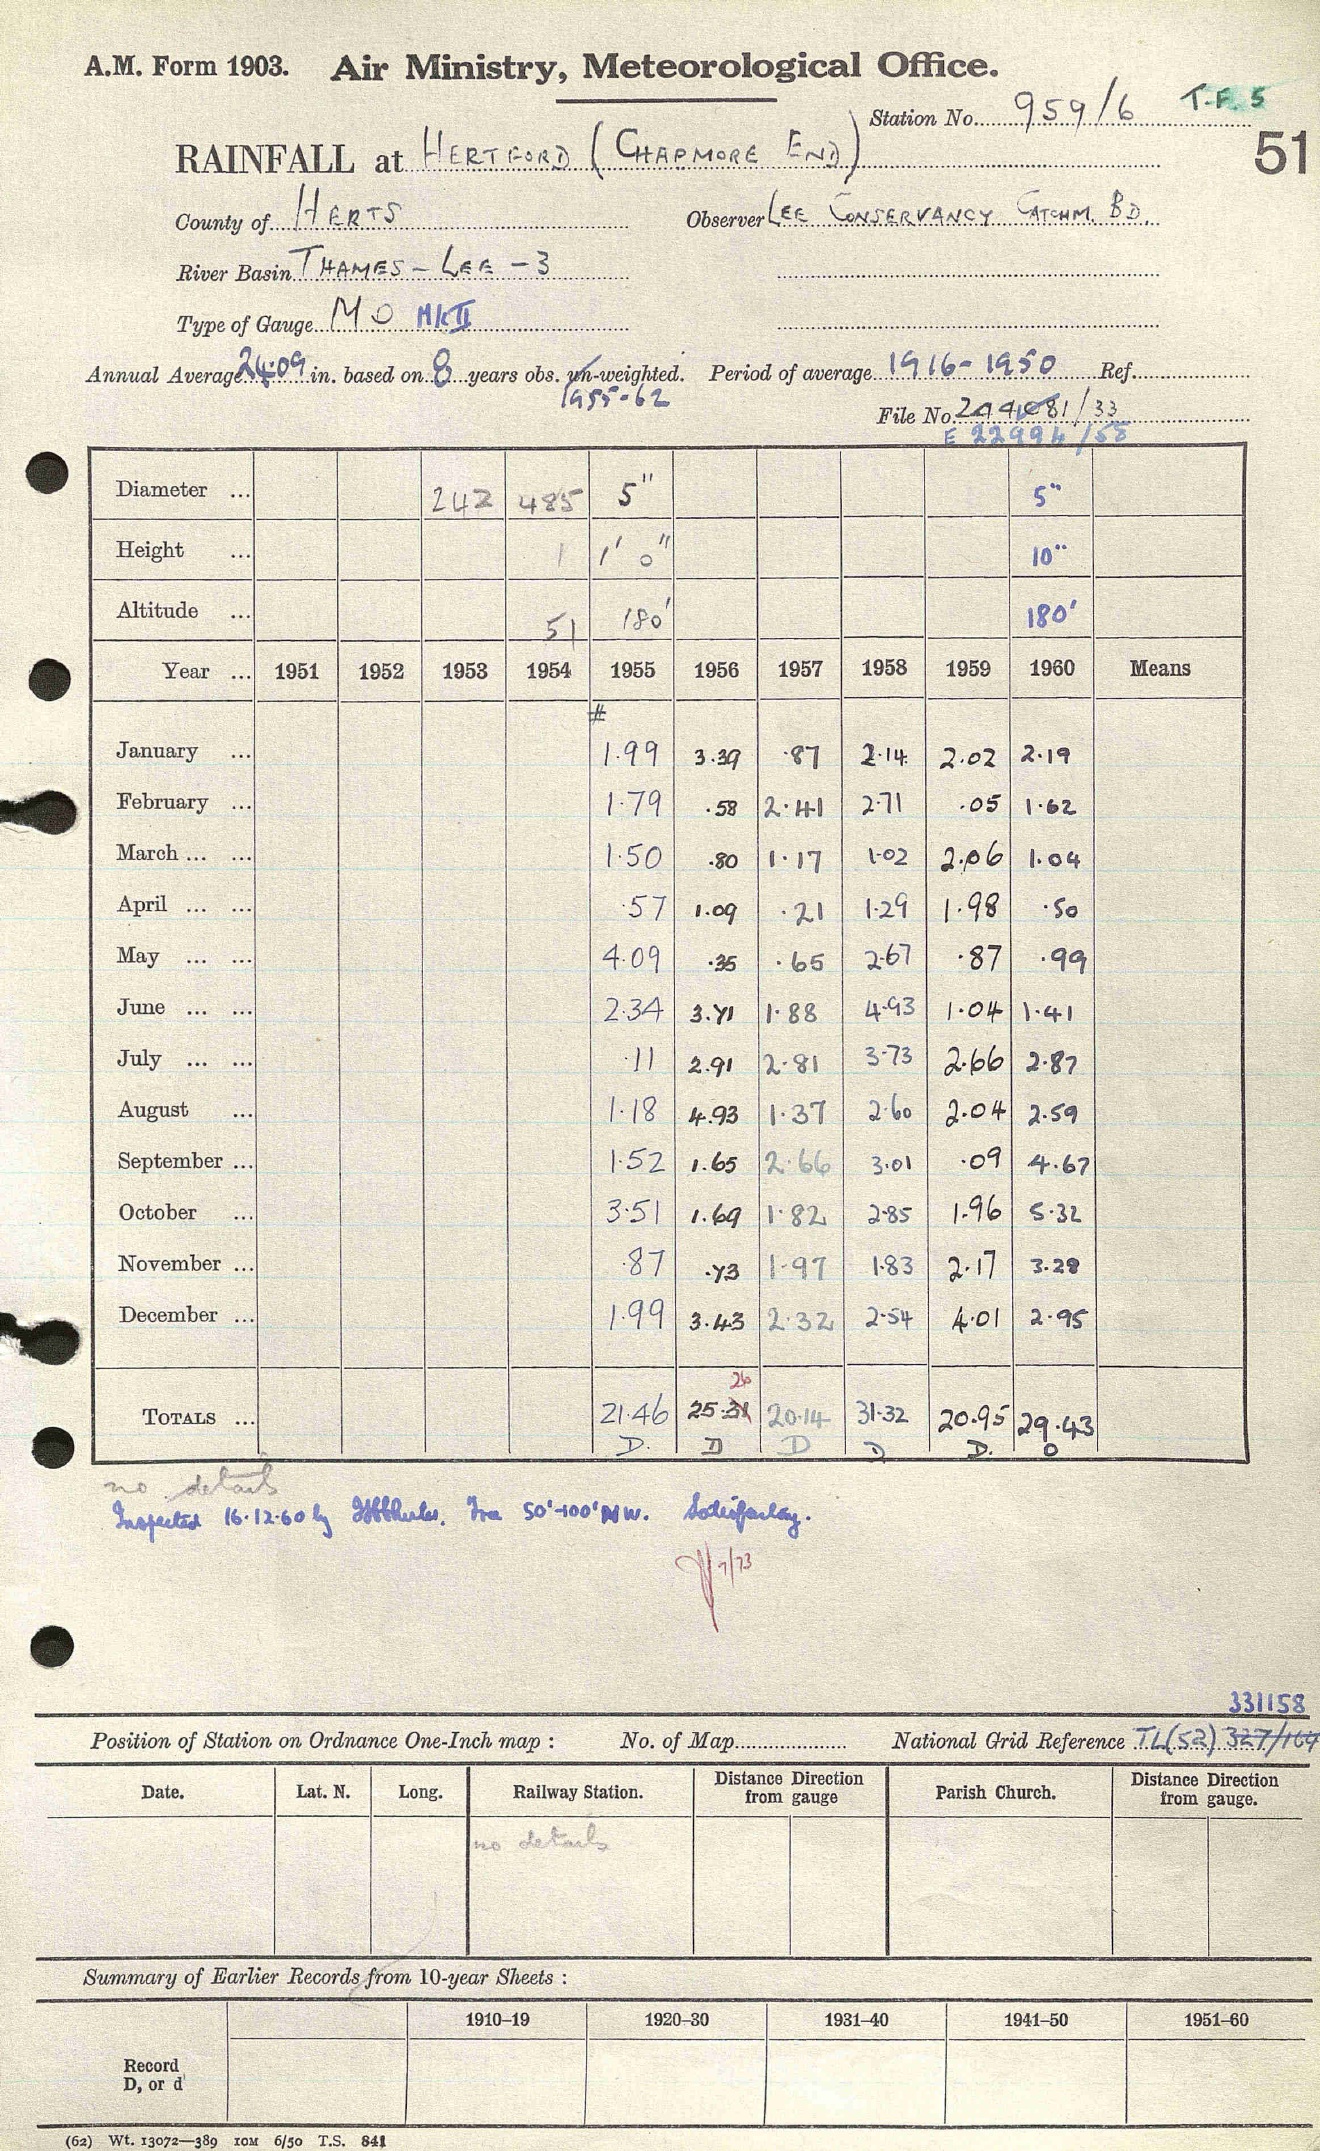 A.M. Form 1903. Air Ministry, Meteorological Office.
Station No. 959/6 T.F. 5
51
RAINFALL at HERTFORD (CHAPMORE END)
County of HERTS Observer LEE CONSERVANCY CATCHM. BD.
River Basin THAMES - LEE - 3
Type of Gauge MO MkII
Annual Average 24.09 in. based on 8 years obs. un-weighted. Period of average 1916-1950 Ref.
1955-62
File No. /33
E 22994/58
Diameter ... 242 485 5" 5"
Height ... 1 1' 0" 10"
Altitude ... 51 180' 180'
Year ... 1951 1952 1953 1954 1955 1956 1957 1958 1959 1960 Means
#
January ... 1.99 3.39 .87 2.14 2.02 2.19
February ... 1.79 .58 2.41 2.71 .05 1.62
March ... ... 1.50 .80 1.17 1.02 2.06 1.04
April ... ... .57 1.09 .21 1.29 1.98 .50
May ... ... 4.09 .35 .65 2.67 .87 .99
June ... ... 2.34 3.71 1.88 4.93 1.04 1.41
July ... ... .11 2.91 2.81 3.73 2.66 2.87
August ... 1.18 4.93 1.37 2.60 2.04 2.59
September ... 1.52 1.65 2.66 3.01 .09 4.67
October ... 3.51 1.69 1.82 2.85 1.96 5.32
November ... .87 .73 1.97 1.83 2.17 3.28
December ... 1.99 3.43 2.32 2.54 4.01 2.95
26
TOTALS ... 21.46 25.31 20.14 31.32 20.95 29.43
D. D D D D. D
no details
Inspected 16.12.60 by Tree 50'-100' NW. Satisfactory.
7/73
331158
Position of Station on Ordnance One-Inch map : No. of Map National Grid Reference TL(52) 327/164
Date. Lat. N. Long. Railway Station. Distance Direction from gauge Parish Church. Distance Direction from gauge.
no details
Summary of Earlier Records from 10-year Sheets :
1910–19 1920–30 1931–40 1941–50 1951–60
Record
D, or d
(62) Wt. 13072—389 10M 6/50 T.S. 841